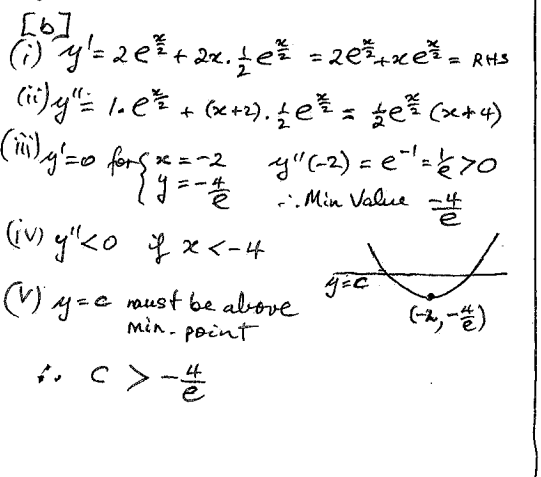 [b]
(i) y' = 2e^{x/2} + 2x · ½ e^{x/2} = 2e^{x/2} + xe^{x/2} = RHS
(ii) y'' = 1 · e^{x/2} + (x+2) · ½ e^{x/2} = ½ e^{x/2} (x+4)
(iii) y' = 0 for { x = -2 y''(-2) = e^{-1} = 1/e > 0
y = -4/e ∴ Min Value -4/e
(iv) y'' < 0 if x < -4
y = c
(v) y = c must be above
min. point
(-2, -4/e)
∴ c > -4/e